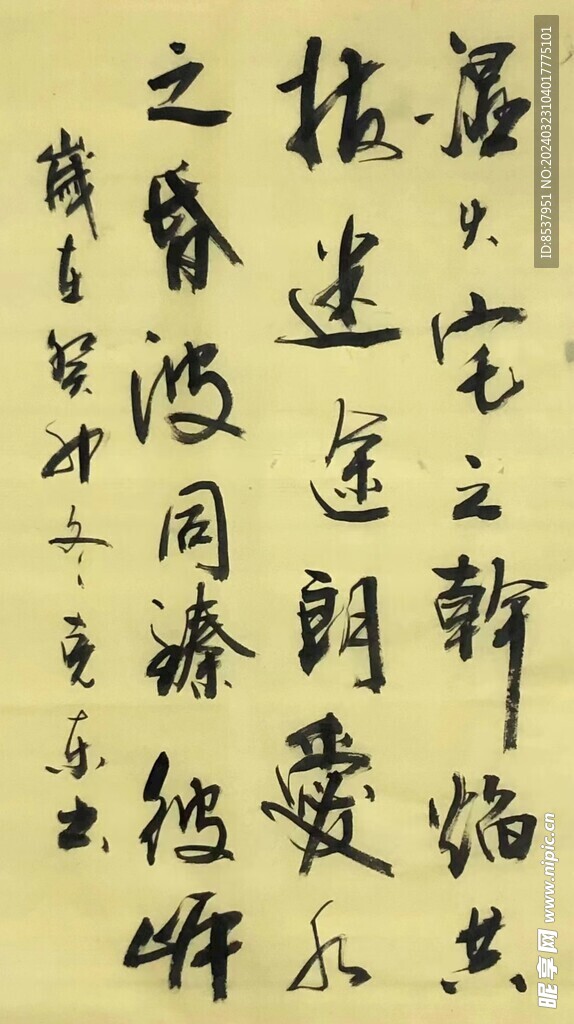 湿火宅之幹焰共
拔迷途朗愛水
之昏波同臻彼岸
歲在癸卯冬克东书
ID:8537951 NO:20240323104017775101
昵享网 www.nipic.cn